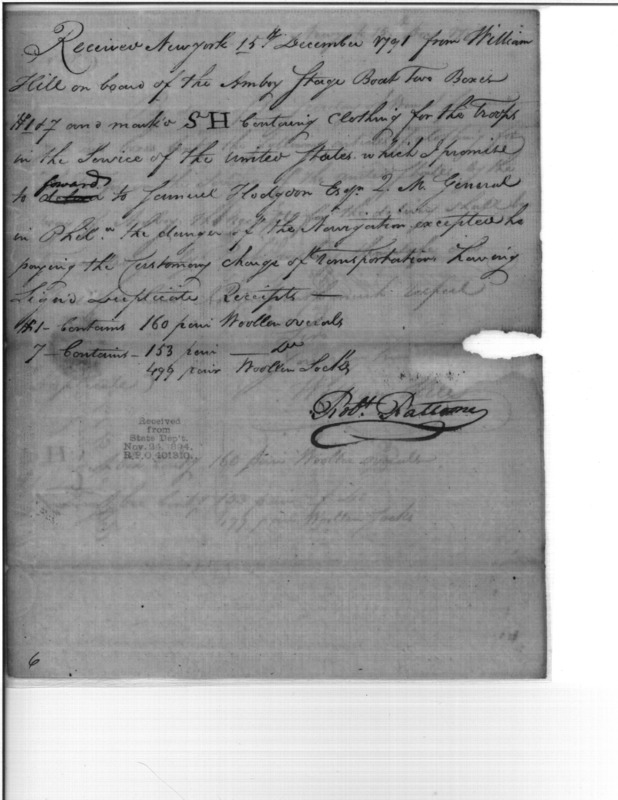 Received New york 15th December 1791 from William
Hill on board of the Amboy Stage Boat Two Boxes
#1 & 7 and mark'd SH Containg Clothing for the Troops
in the Service of the United States which I promise
to forward to Samuel Hodgdon Esqr. Q. M. General
in Phila. the danger of the Navigation excepted he
paying the Customary Charge of Transportation Having
Signd Duplicate Receipts —
#1 - Contains 160 pair Woollen overals
7 - Contains - 153 pair Do
499 pair Woollen Socks
Robt. Pattson
Received
from
State Dep't.
Nov. 24, 1894.
R.P.O. 401360.
6